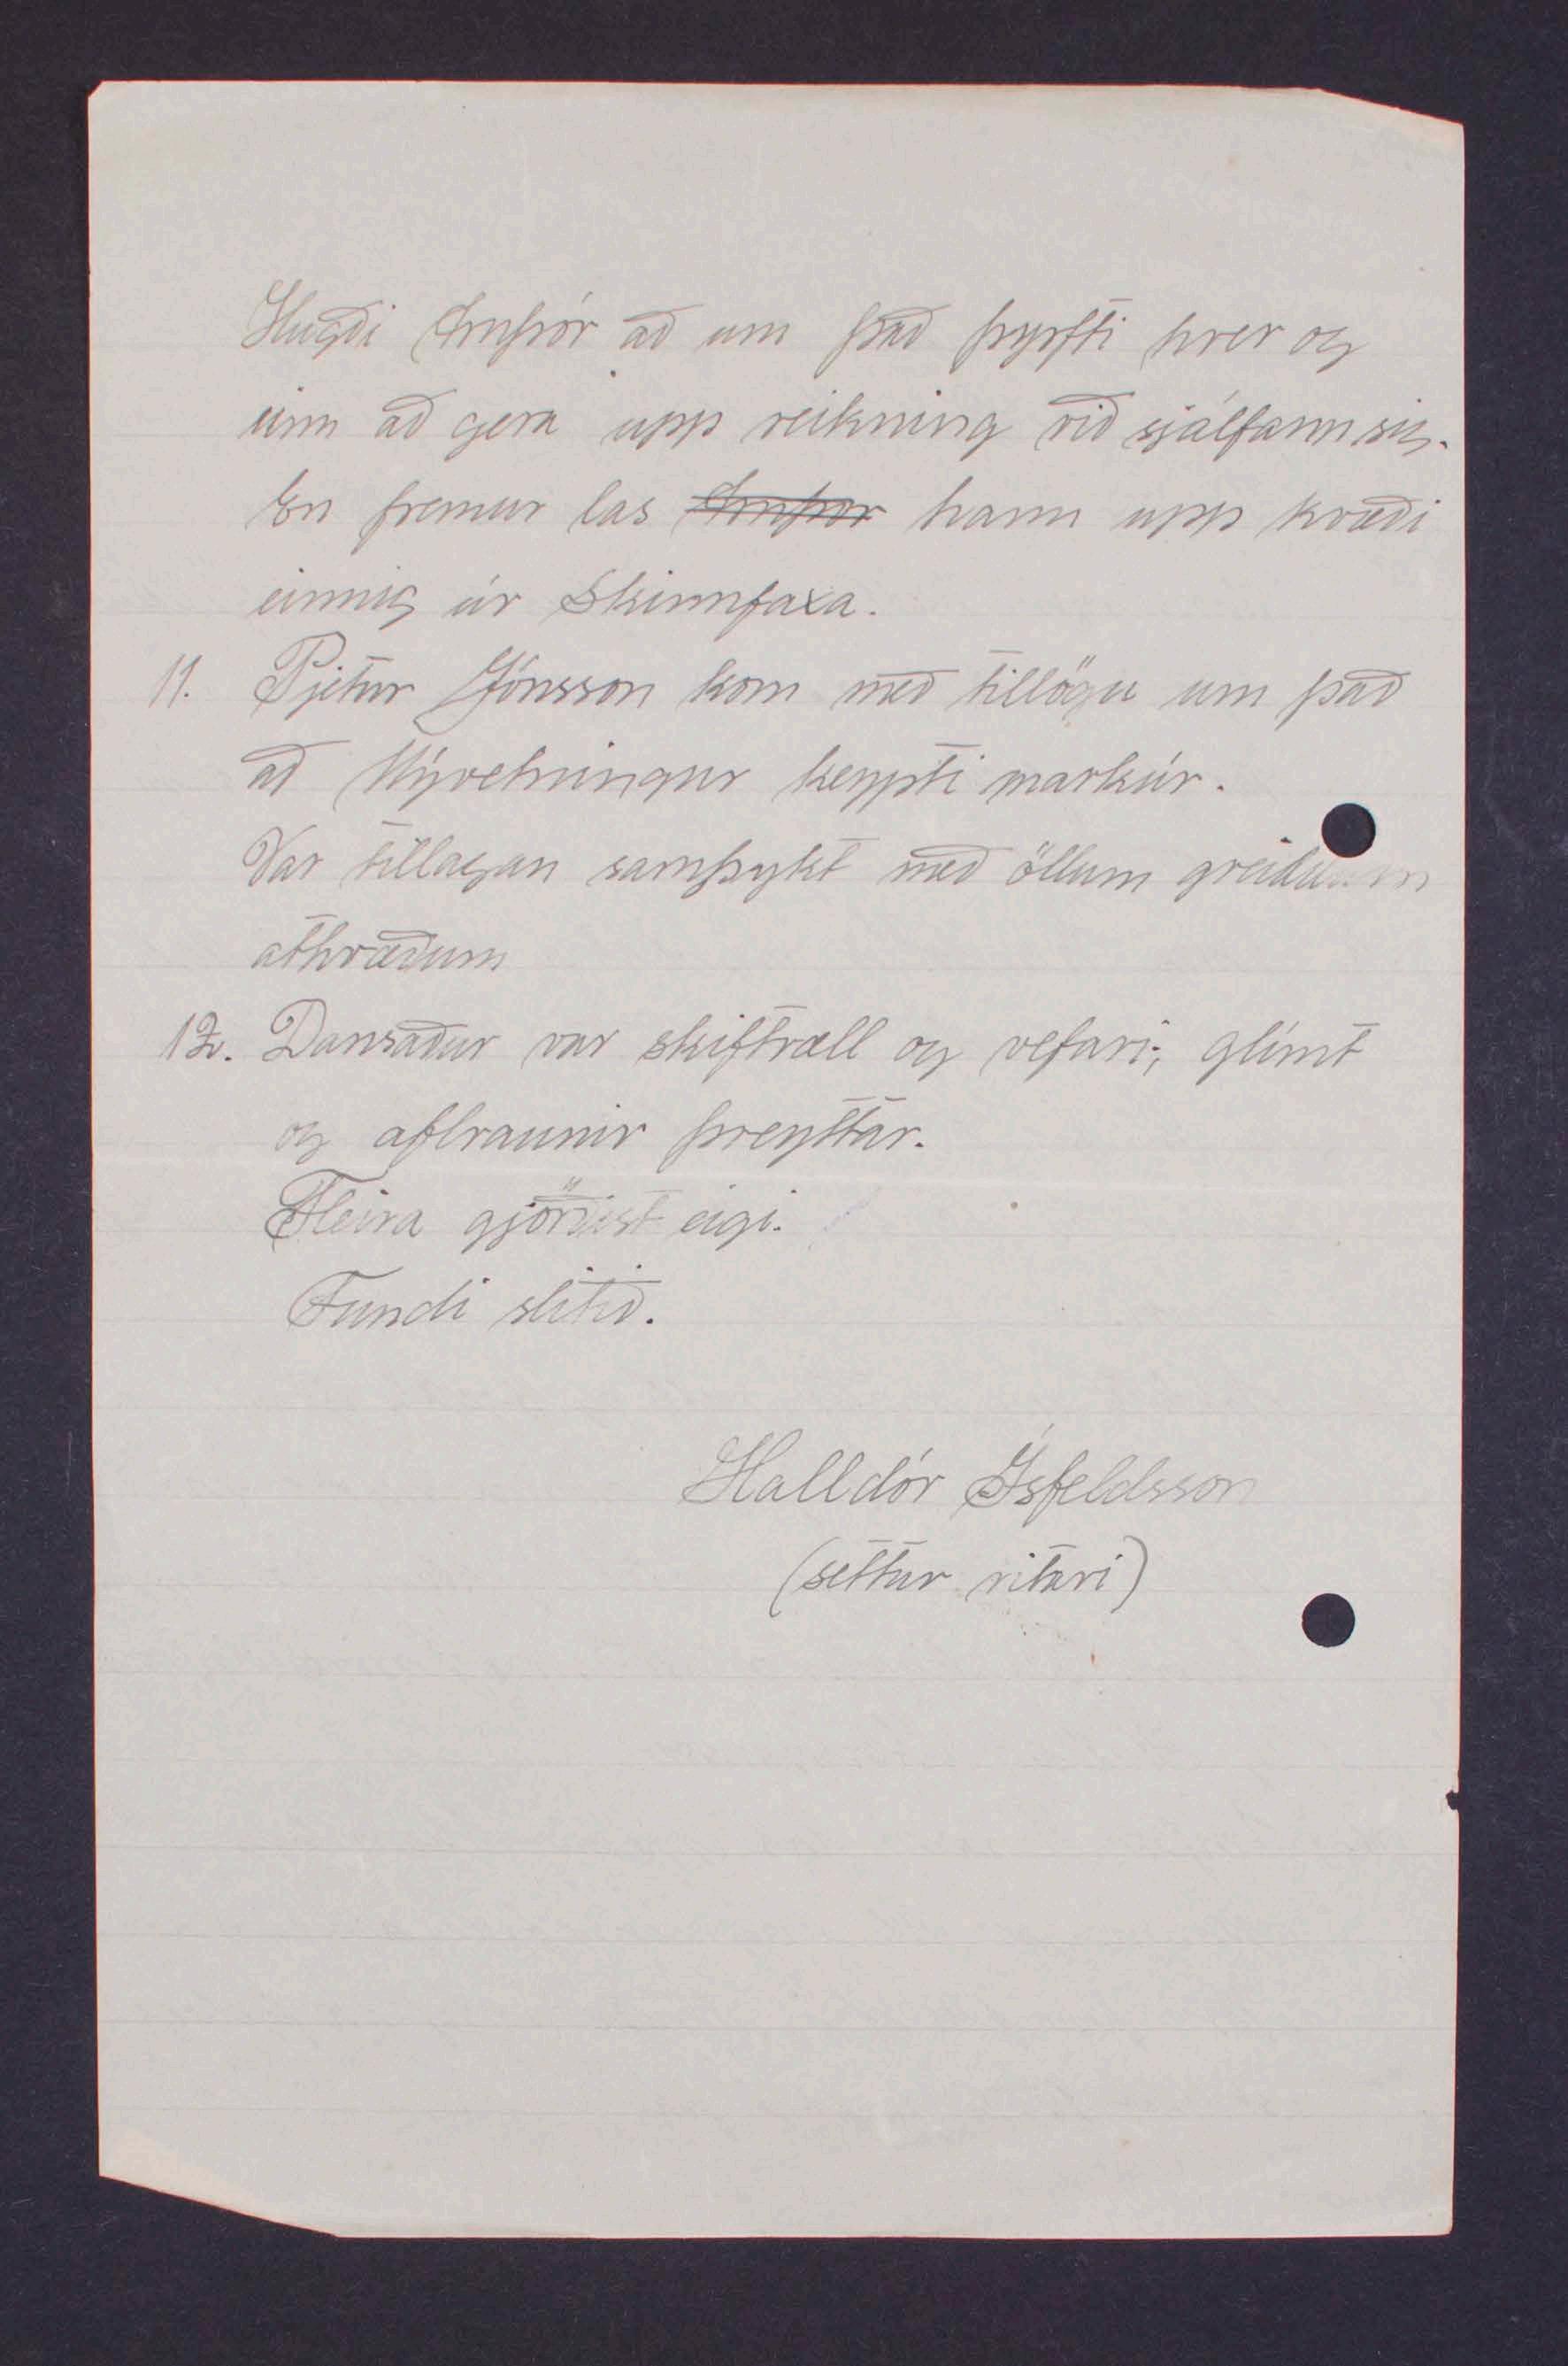 Hugði Arnþór að um það þyrfti hver og
einn að gera upp reikning við sjálfann sig.
En fremur las Arnþór hann upp kvæði
einnig úr Skinnfaxa.
11. Pjetur Jónsson kom með tillögu um það
að Mývetningur keypti markúr.
Var tillagan samþykt með öllum greiddum
atkvæðum
12. Dansaður var skiftræll og vefari, glímt
og aflraunir þreyttar.
Fleira gjörðist eigi.
Fundi slitið.
Halldór Ísfeldsson
(settur ritari)